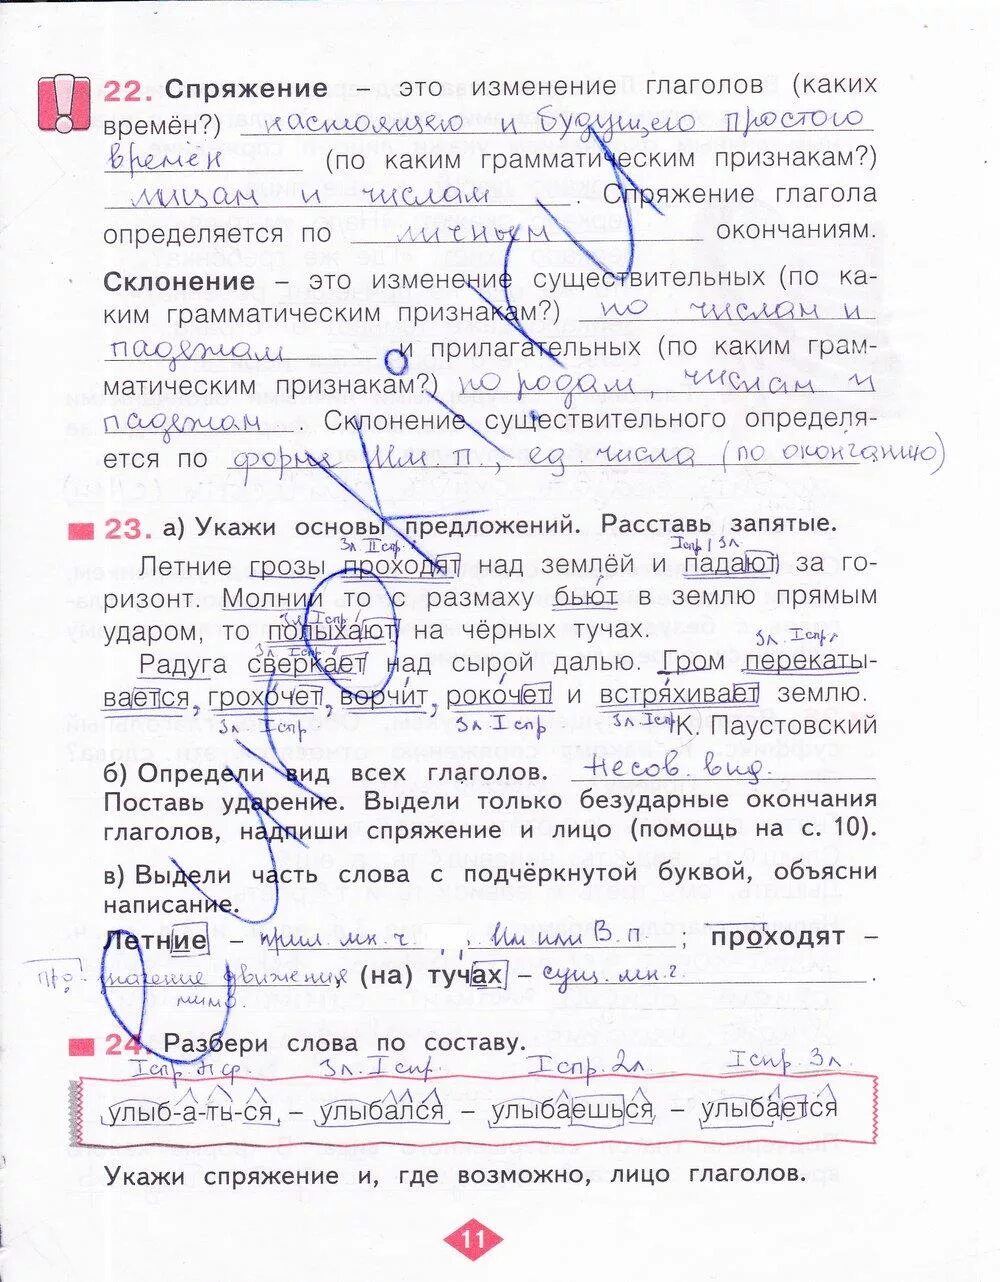 22. Спряжение – это изменение глаголов (каких
времён?) настоящего и будущего простого
времен (по каким грамматическим признакам?)
лицам и числам. Спряжение глагола
определяется по личным окончаниям.
Склонение – это изменение существительных (по ка-
ким грамматическим признакам?) по числам и
падежам и прилагательных (по каким грам-
матическим признакам?) по родам, числам и
падежам. Склонение существительного определя-
ется по форме Им. п., ед числа (по окончанию)
23. а) Укажи основы предложений. Расставь запятые.
3л. II спр. I спр 3л.
Летние грозы проходят над землёй и падают за го-
ризонт. Молнии то с размаху бьют в землю прямым
3л. I спр
ударом, то полыхают на чёрных тучах.
3л. I спр 3л. I спр
Радуга сверкает над сырой далью. Гром перекаты-
вается, грохочет, ворчит, рокочет и встряхивает землю.
3л. I спр 3л. I спр 3л. I спр
К. Паустовский
б) Определи вид всех глаголов. Несов. вид.
Поставь ударение. Выдели только безударные окончания
глаголов, надпиши спряжение и лицо (помощь на с. 10).
в) Выдели часть слова с подчёркнутой буквой, объясни
написание.
Летние – прил. мн. ч, Им или В. п.; проходят –
про- значение движения (на) тучах – сущ. мн. ч.
мимо.
24. Разбери слова по составу.
I спр. 3л. I спр. I спр. 2л. I спр. 3л.
улыб-а-ть-ся, – улыбался – улыбаешься – улыбается
Укажи спряжение и, где возможно, лицо глаголов.
11